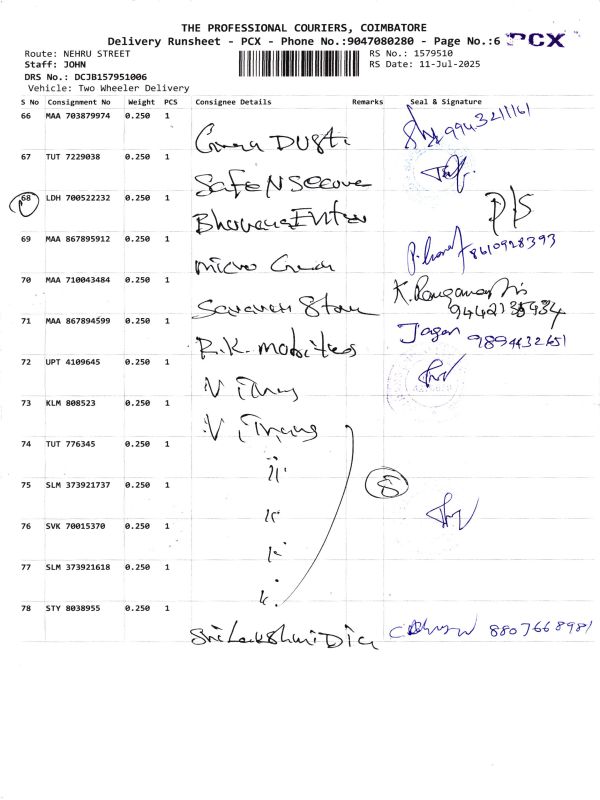 THE PROFESSIONAL COURIERS, COIMBATORE
Delivery Runsheet - PCX - Phone No.:9047080280 - Page No.:6 PCX
Route: NEHRU STREET RS No.: 1579510
Staff: JOHN RS Date: 11-Jul-2025
DRS No.: DCJB157951006
Vehicle: Two Wheeler Delivery
S No Consignment No Weight PCS Consignee Details Remarks Seal & Signature
66 MAA 703879974 0.250 1
9943211161
67 TUT 7229038 0.250 1
Safe N Secure
68 LDH 700522232 0.250 1
D/S
69 MAA 867895912 0.250 1
Micro 8610928393
70 MAA 710043484 0.250 1
Saravan Store
71 MAA 867894599 0.250 1
R.K. Mobiles Jagan 9894432651
72 UPT 4109645 0.250 1
73 KLM 808523 0.250 1
V i Trans
74 TUT 776345 0.250 1
75 SLM 373921737 0.250 1
76 SVK 70015370 0.250 1
77 SLM 373921618 0.250 1
78 STY 8038955 0.250 1
Sri Lakshmi 8807668981